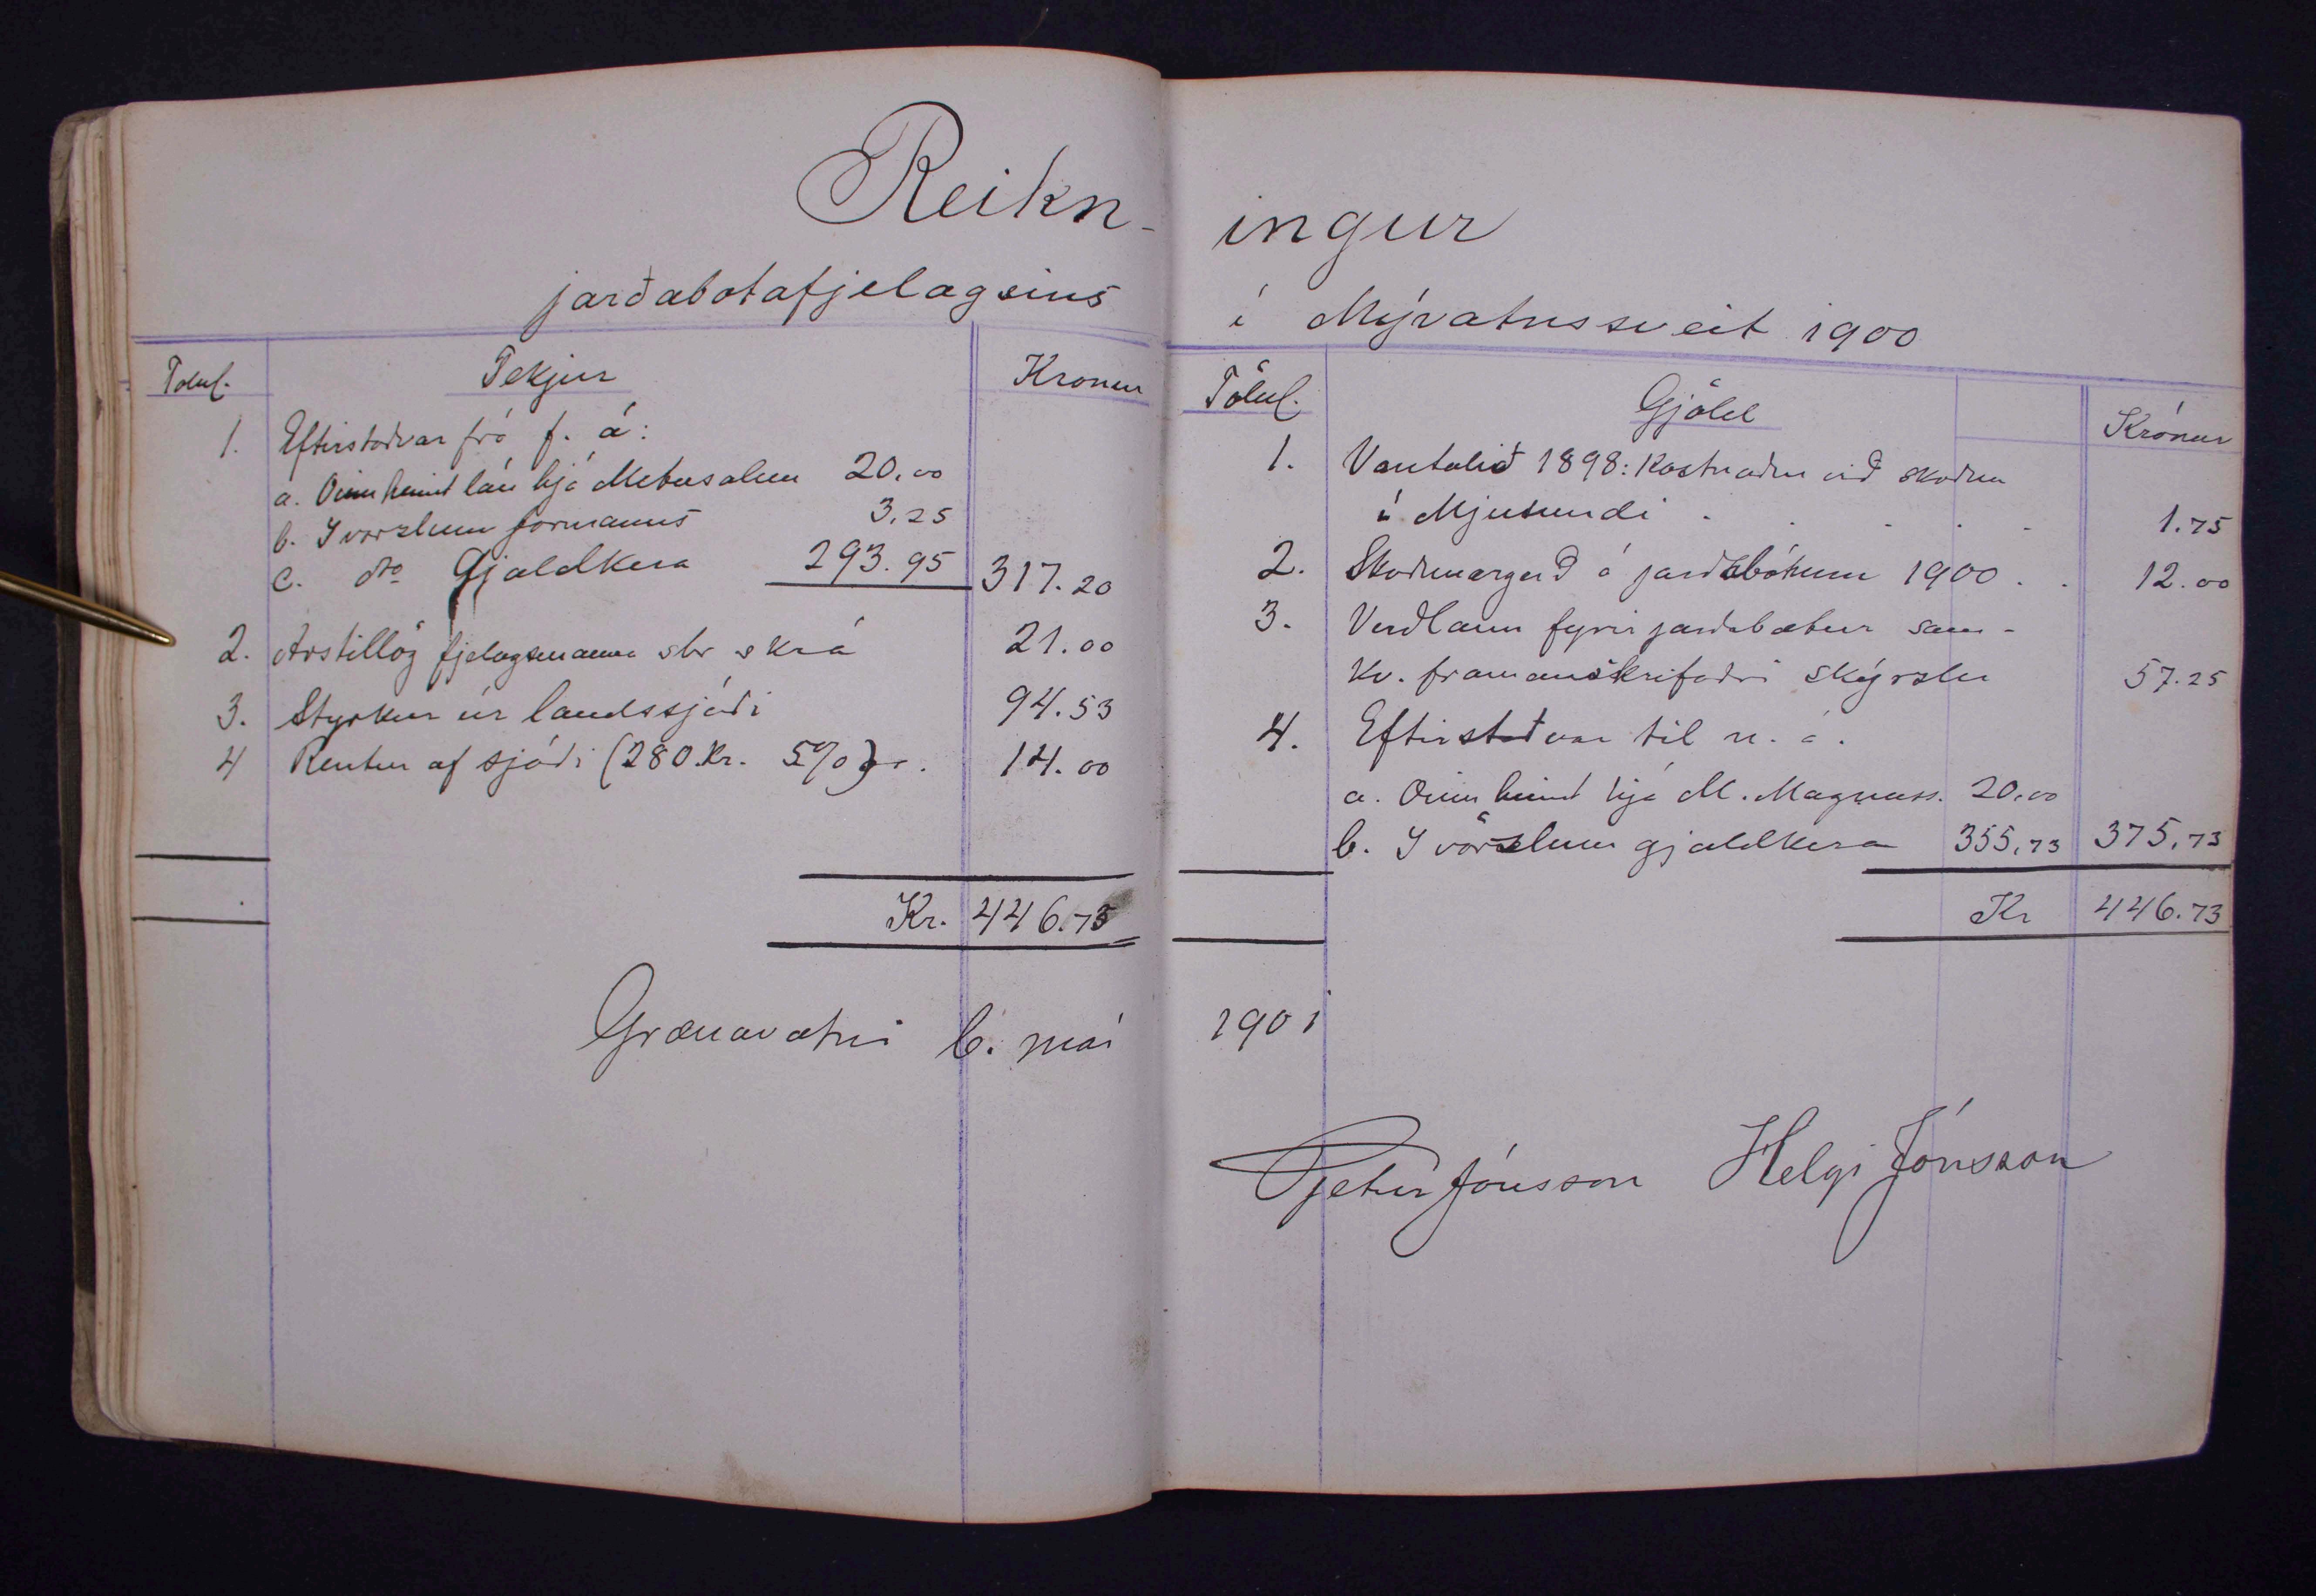 Reikn-
ingur
jarðabotafjelagsins
í Mývatnssveit 1900
Tölul. Tekjur Kronur
1. Eftirstoðvar frá f. á:
a. Óinnheimt lán hjá Metusalem 20.00
b. Í vorzlum formanns 3.25
c. do Gjaldkera 293.95 317.20
2. Árstillög fjelagsmanna sbr skrá 21.00
3. Styrkur úr landssjóði 94.53
4 Rentur af sjóði (280.kr. 5%) 14.00
Kr. 446.73
Grænavatni 6. mái
Tölul. Gjöld Krónur
1. Vantalið 1898: Kostnaður við skoðun
í Mjusundi 1.75
2. Skoðunargerð á jarðabótum 1900 . . 12.00
3. Verðlaun fyrir jarðabætur sam-
kv. framanskrifaðri skýrslu 57.25
4. Eftirstöðvar til n. á.
a. Óinnheimt hjá M. Magnúss. 20.00
b. Í vörzlum gjaldkera 355.73 375.73
Kr 446.73
1901
Pjetur Jónsson Helgi Jónsson